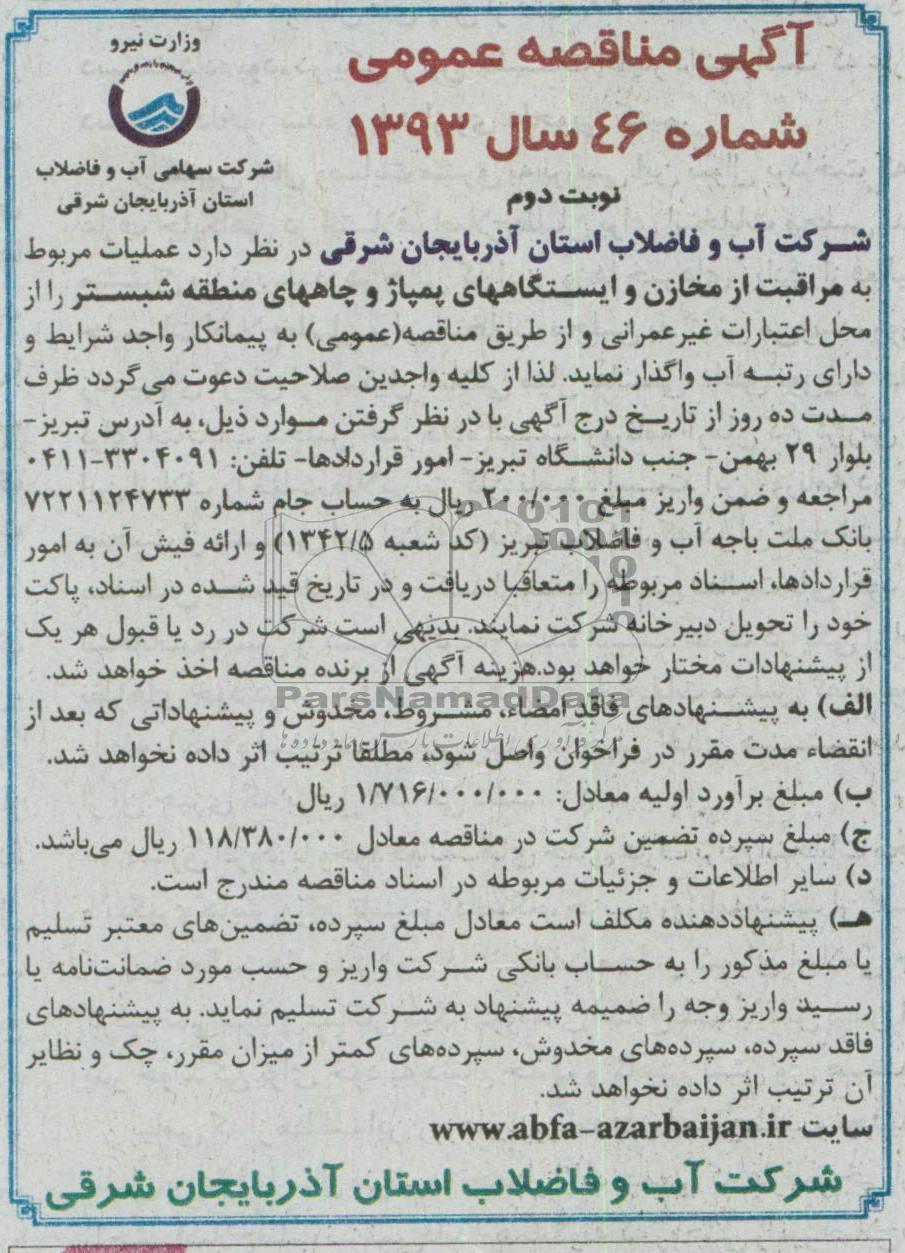 آگهی مناقصه عمومی
شماره ٤٦ سال ۱۳۹۳
نوبت دوم
وزارت نیرو
شرکت سهامی آب و فاضلاب
استان آذربایجان شرقی
شرکت آب و فاضلاب استان آذربایجان شرقی در نظر دارد عملیات مربوط
به مراقبت از مخازن و ایستگاههای پمپاژ و چاههای منطقه شبستر را از
محل اعتبارات غیرعمرانی و از طریق مناقصه(عمومی) به پیمانکار واجد شرایط و
دارای رتبه آب واگذار نماید. لذا از کلیه واجدین صلاحیت دعوت می‌گردد ظرف
مدت ده روز از تاریخ درج آگهی با در نظر گرفتن موارد ذیل، به آدرس تبریز-
بلوار ۲۹ بهمن- جنب دانشگاه تبریز- امور قراردادها- تلفن: ۳۳۰۴۰۹۱-۰۴۱۱
مراجعه و ضمن واریز مبلغ ۲۰۰/۰۰۰ ریال به حساب جام شماره ۷۲۲۱۱۲۴۷۳۳
بانک ملت باجه آب و فاضلاب تبریز (کد شعبه ۱۳۴۲/۵) و ارائه فیش آن به امور
قراردادها، اسناد مربوطه را متعاقبا دریافت و در تاریخ قید شده در اسناد، پاکت
خود را تحویل دبیرخانه شرکت نمایند. بدیهی است شرکت در رد یا قبول هر یک
از پیشنهادات مختار خواهد بود.هزینه آگهی از برنده مناقصه اخذ خواهد شد.
ParsNamadData
الف) به پیشنهادهای فاقد امضاء، مشروط، مخدوش و پیشنهاداتی که بعد از
انقضاء مدت مقرر در فراخوان واصل شود، مطلقا ترتیب اثر داده نخواهد شد.
ب) مبلغ برآورد اولیه معادل: ۱/۷۱۶/۰۰۰/۰۰۰ ریال
ج) مبلغ سپرده تضمین شرکت در مناقصه معادل ۱۱۸/۳۸۰/۰۰۰ ریال می‌باشد.
د) سایر اطلاعات و جزئیات مربوطه در اسناد مناقصه مندرج است.
هـ) پیشنهاددهنده مکلف است معادل مبلغ سپرده، تضمین‌های معتبر تسلیم
یا مبلغ مذکور را به حساب بانکی شرکت واریز و حسب مورد ضمانت‌نامه یا
رسید واریز وجه را ضمیمه پیشنهاد به شرکت تسلیم نماید. به پیشنهادهای
فاقد سپرده، سپرده‌های مخدوش، سپرده‌های کمتر از میزان مقرر، چک و نظایر
آن ترتیب اثر داده نخواهد شد.
سایت www.abfa-azarbaijan.ir
شرکت آب و فاضلاب استان آذربایجان شرقی